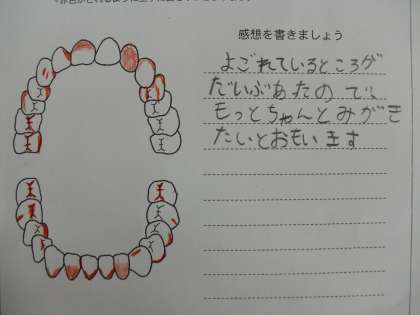 感想を書きましょう
よごれているところが
だいぶあたので、
もっとちゃんとみがき
たいとおもいます